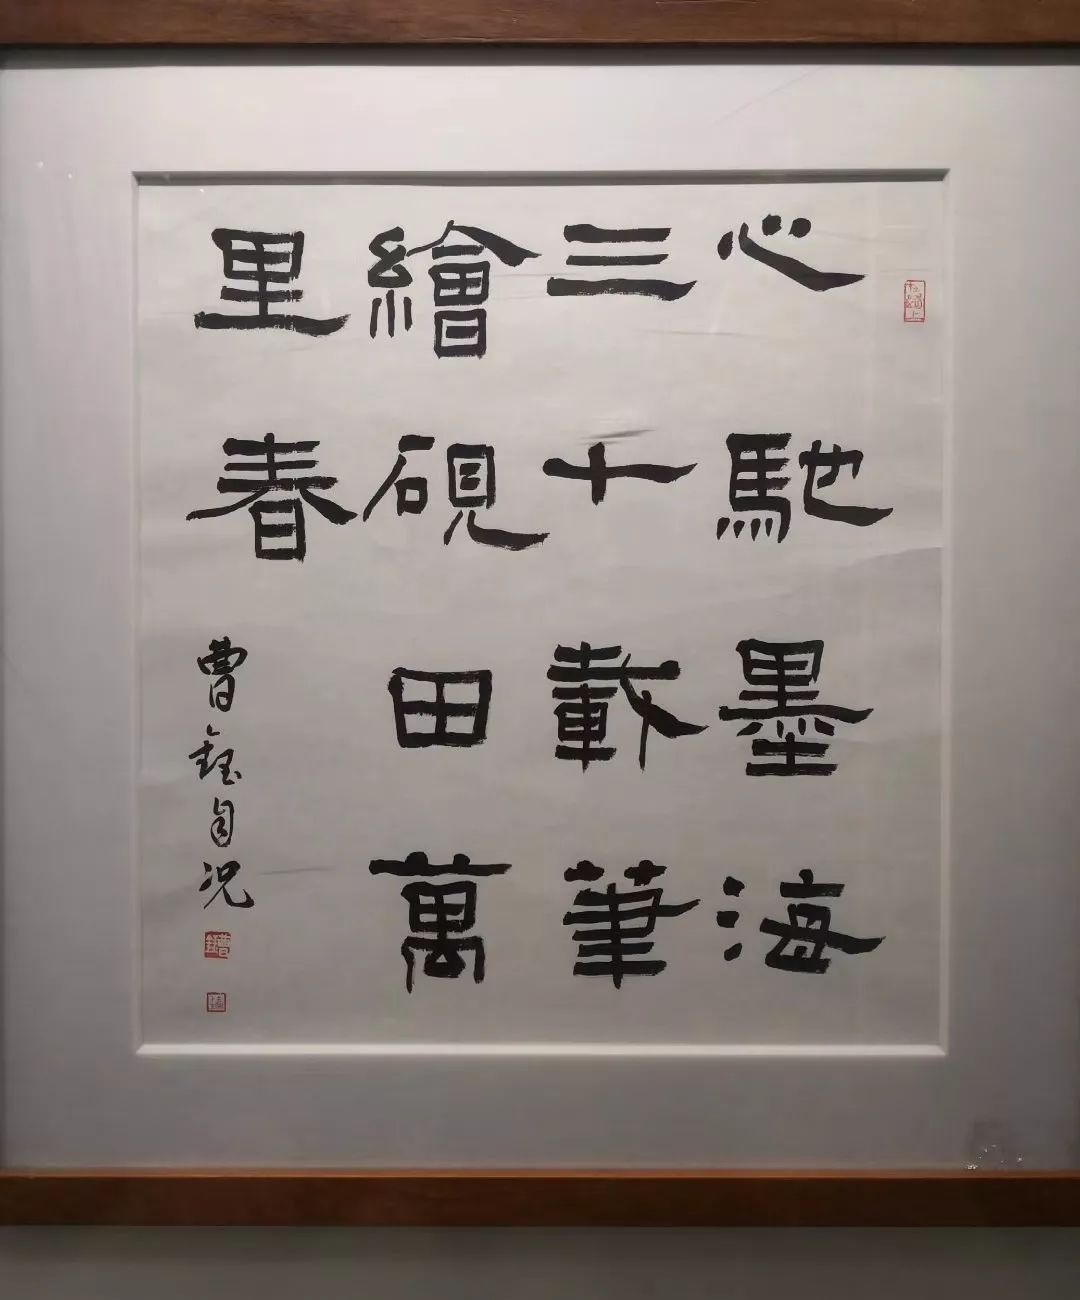 心馳墨海
三十載筆
繪硯田萬
里春
曹鈺自况